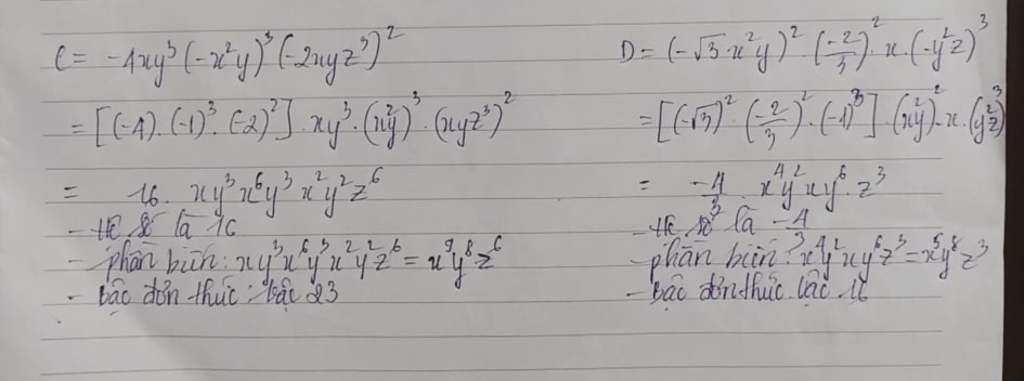 C = -4xy³(-x²y)³(-2xyz³)²
= [(-4).(-1)³.(-2)²].xy³.(x²y)³.(xyz³)²
= 16. xy³x⁶y³x²y²z⁶
- Hệ số là 16
- phần biến: xy³x⁶y³x²y²z⁶ = x⁹y⁸z⁶
- Bậc đơn thức: bậc 23
D = (-√3 x²y)².(-2/3)².x.(-y²z)³
= [(-√3)².(-2/3)².(-1)³].(x²y)².x.(y²z)³
= -4/3 x⁴y²xy⁶.z³
- Hệ số là -4/3
- phần biến: x⁴y²xy⁶z³ = x⁵y⁸z³
- Bậc đơn thức. bậc 16